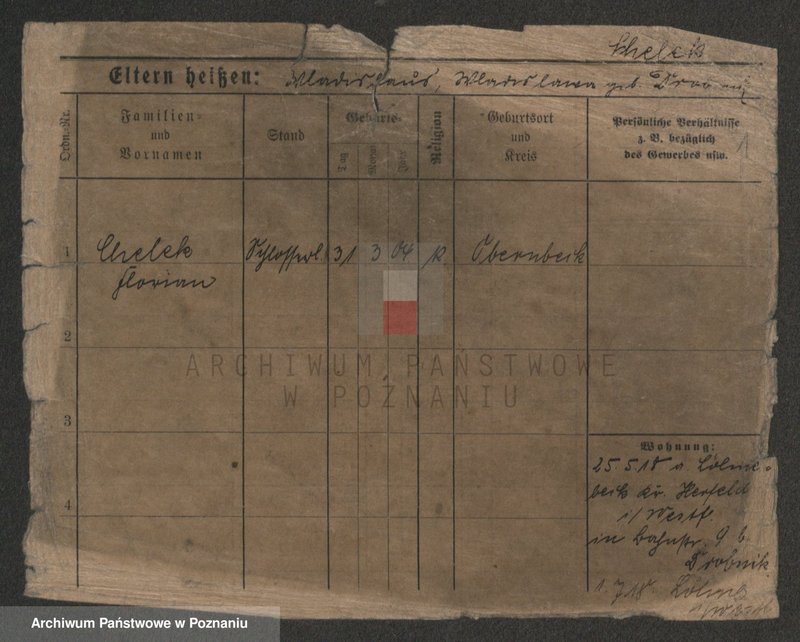 Chelek
Eltern heißen: Wladislaus, Wladislawa geb.
Ordn.-Nr.
Familien- und Vornamen
Stand
Geburts-
Tag
Monat
Jahr
Religion
Geburtsort und Kreis
Persönliche Verhältnisse
z. B. bezüglich
des Gewerbes usw.
1
1 Chelek Schlosserl. 31 3 04 k Obernbeck
Florian
2
3
4
Wohnung:
25.5.18 a. Löhne-
beck Kr. Herford
i/ Westf.
in Bahnstr. 9 b.
Drobnik
1.7.18. Löhne
ARCHIWUM PAŃSTWOWE
W POZNANIU
Archiwum Państwowe w Poznaniu